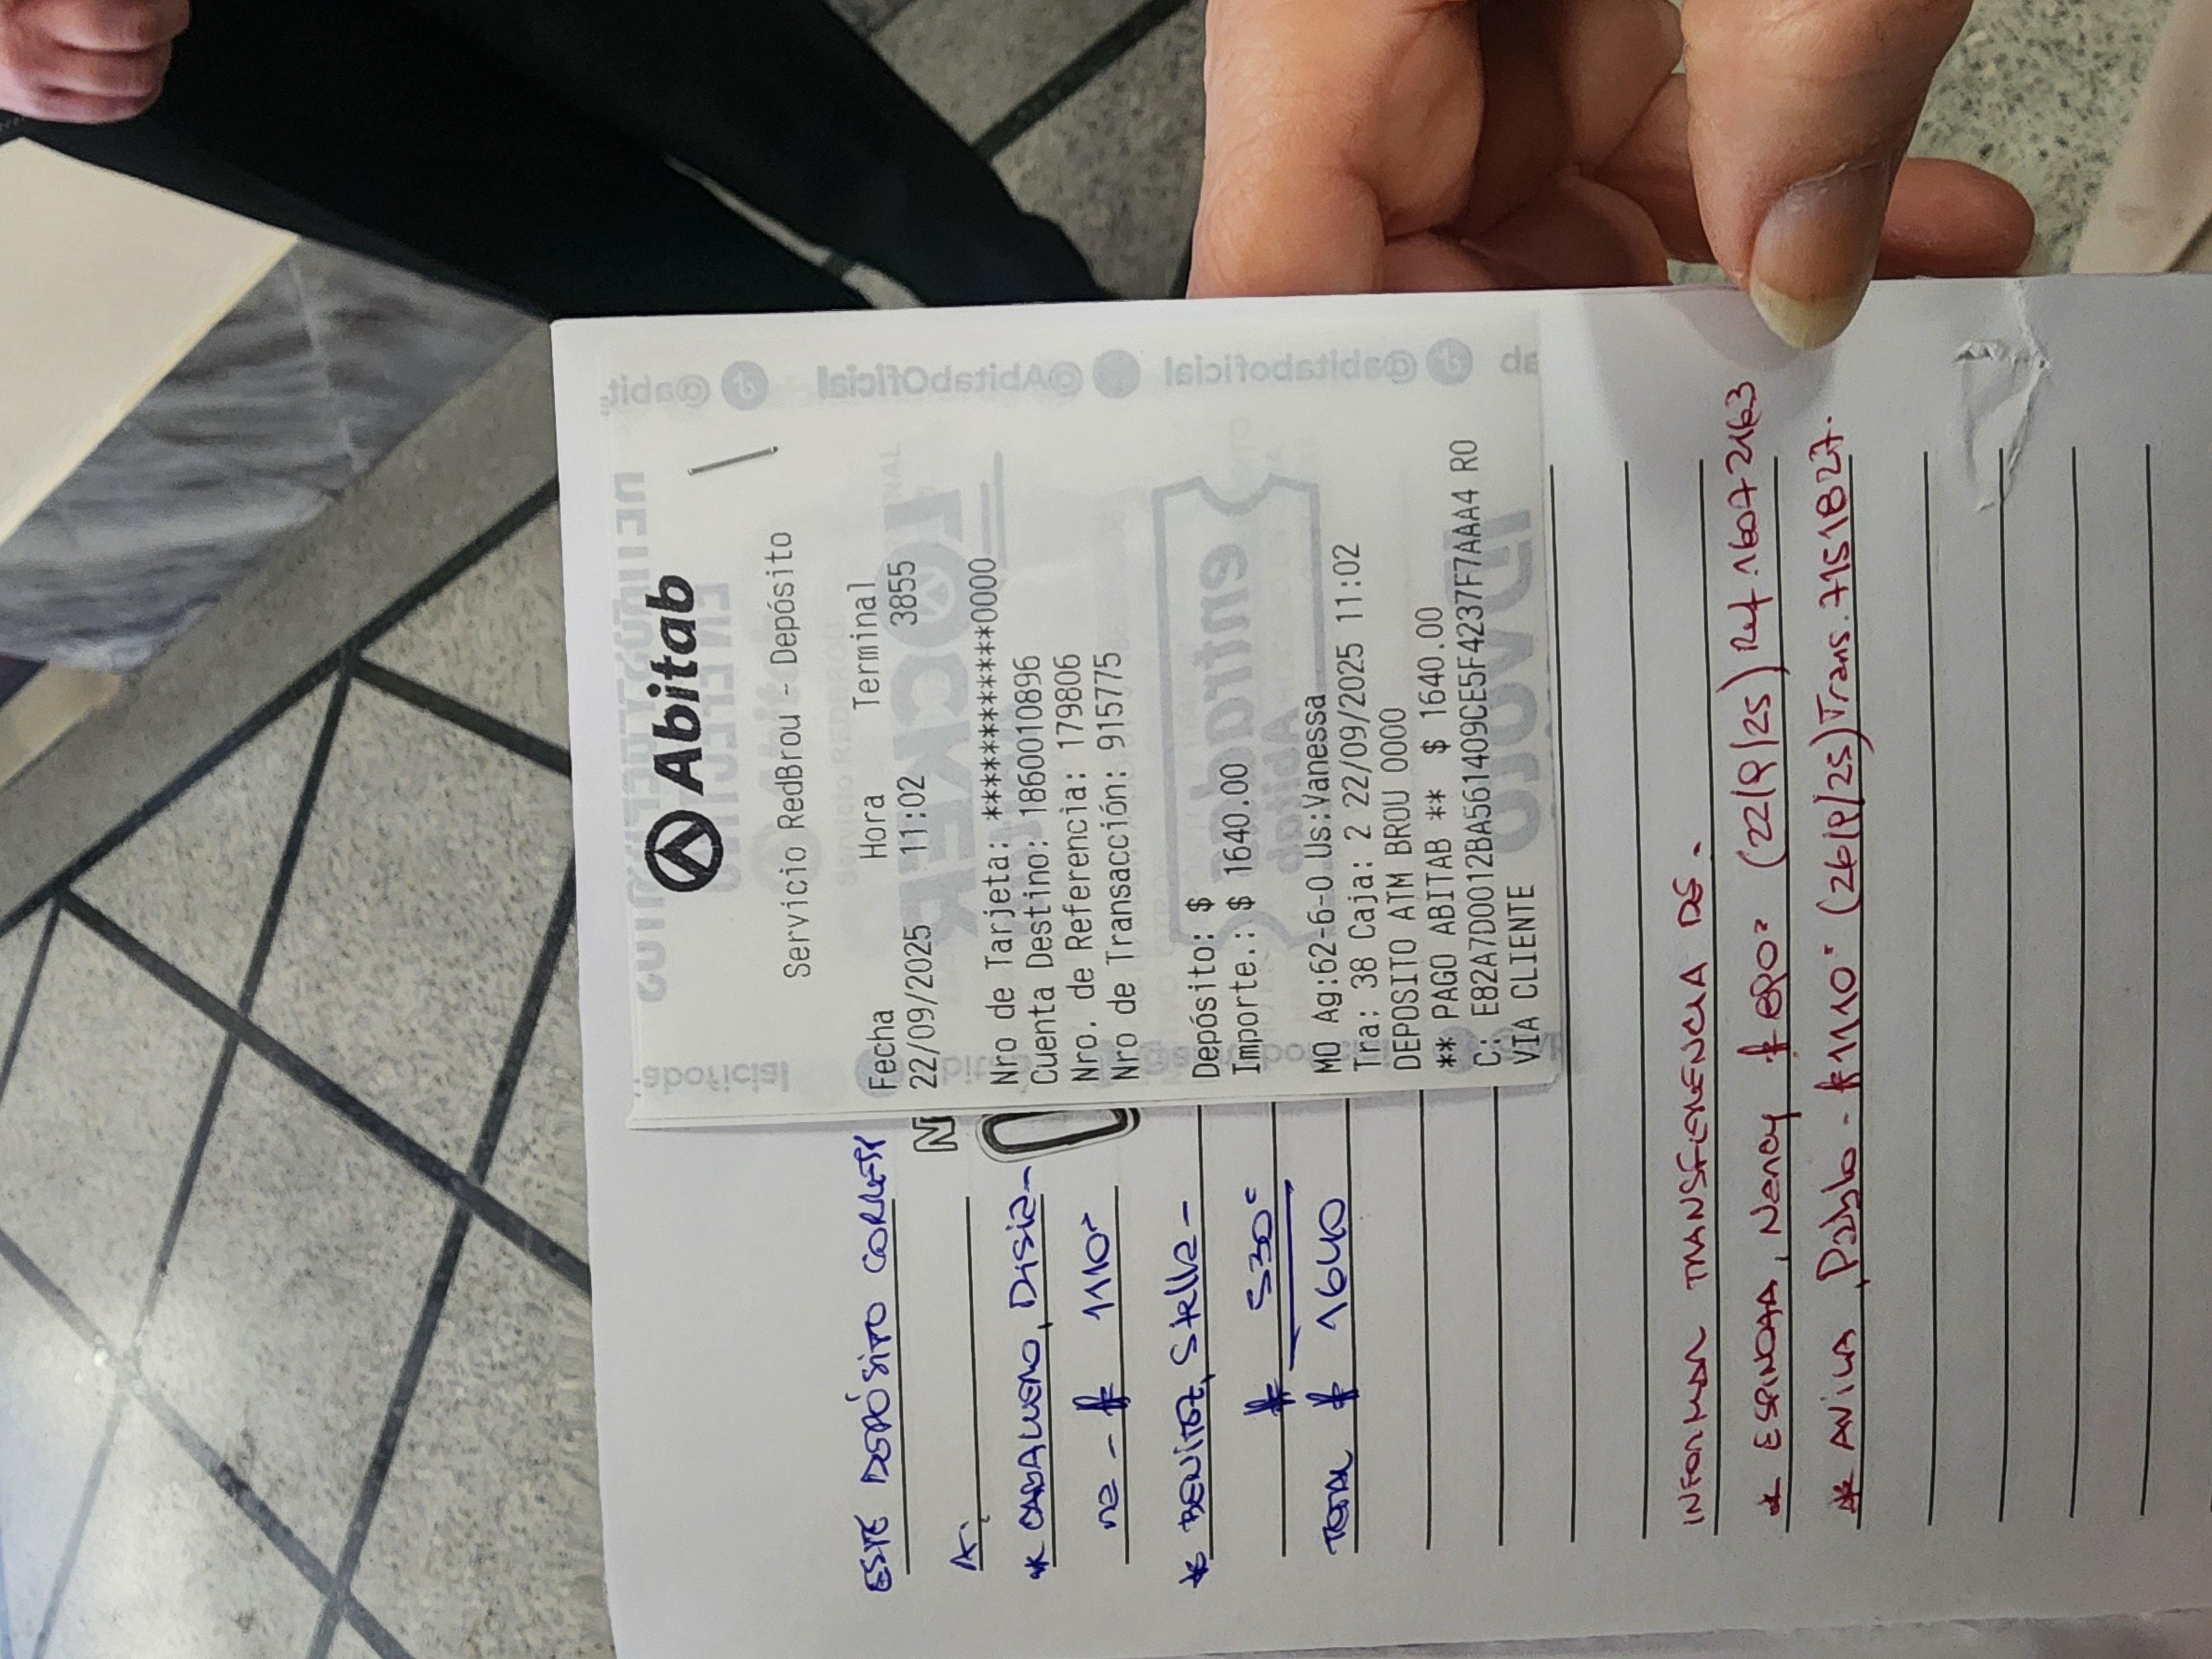 Abitab
Servicio RedBrou - Depósito
Fecha Hora Terminal
22/09/2025 11:02 3855
Nro de Tarjeta: ************0000
Cuenta Destino: 18600010896
Nro. de Referencia: 179806
Nro de Transacción: 915775
Depósito: $
Importe.: $ 1640.00
MO Ag:62-6-0 Us:Vanessa
Tra: 38 Caja: 2 22/09/2025 11:02
DEPOSITO ATM BROU 0000
** PAGO ABITAB ** $ 1640.00
C: E82A7D0012BA561409CE5F4237F7AAA4 RO
VIA CLIENTE
ESTE DEPÓSITO CORRESP
A:
* CABALLERO, Disia-
na - $ 1110
* BENITEZ, Stella -
$ 530
TOTAL $ 1640
INFORMAR TRANSFERENCIA DE.
* ESPINOSA, Nancy $ 890 (22/9/25) Ref. 16072163
* AVILA, Pablo - $ 1110 (26/9/25) Trans. 7151827.